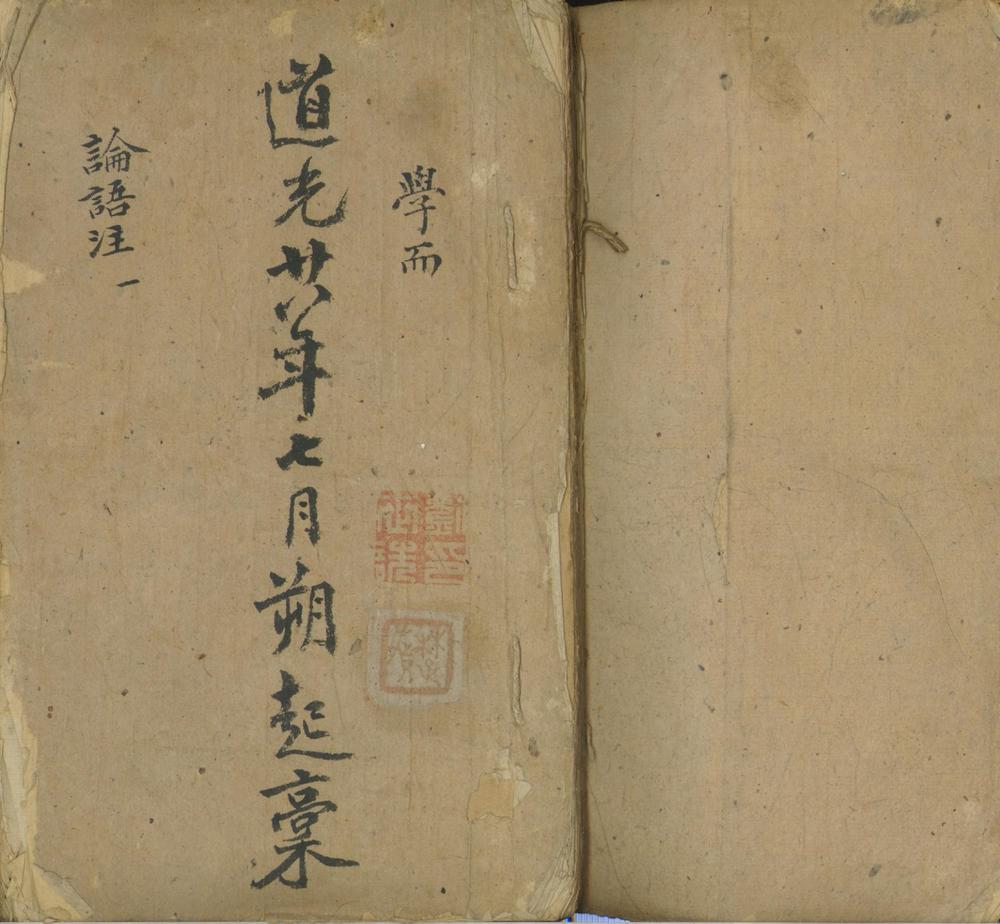 學而
道光廿八年七月朔起稾
論語注 一